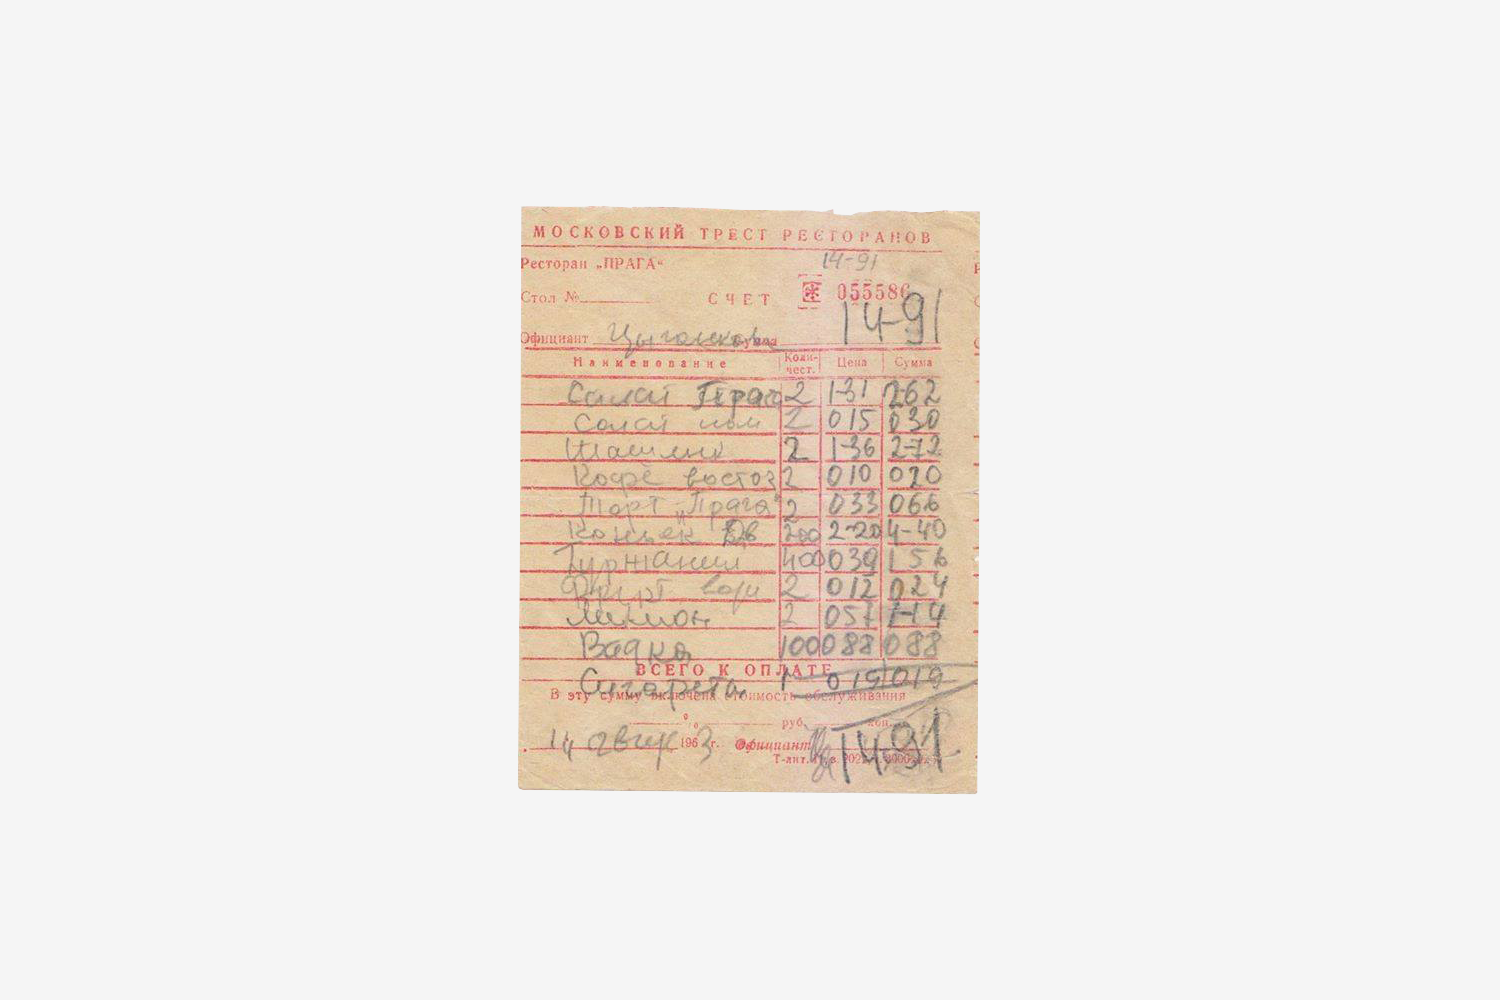 МОСКОВСКИЙ ТРЕСТ РЕСТОРАНОВ
Ресторан „ПРАГА“ 14-91
Стол № СЧЕТ 055586
14-91
Официант Цыганкова
Наименование Коли-чест. Цена Сумма
Салат Прага 2 1-31 2-62
Салат пом 2 0 15 0 30
Шашлык 2 1-36 2-72
Кофе восточ 2 0 10 0 20
Торт „Прага“ 2 0 33 0 66
Коньяк 200 2-20 4-40
Гурджаани 400 0 39 1 56
Фрукт воды 2 0 12 0 24
Лимон 2 0 57 1-14
Водка 100 0 88 0 88
ВСЕГО К ОПЛАТЕ
Сигареты 1 0 19 0 19
В эту сумму включена стоимость обслуживания
% руб. коп.
14 август 1963 г. Официант 14-91